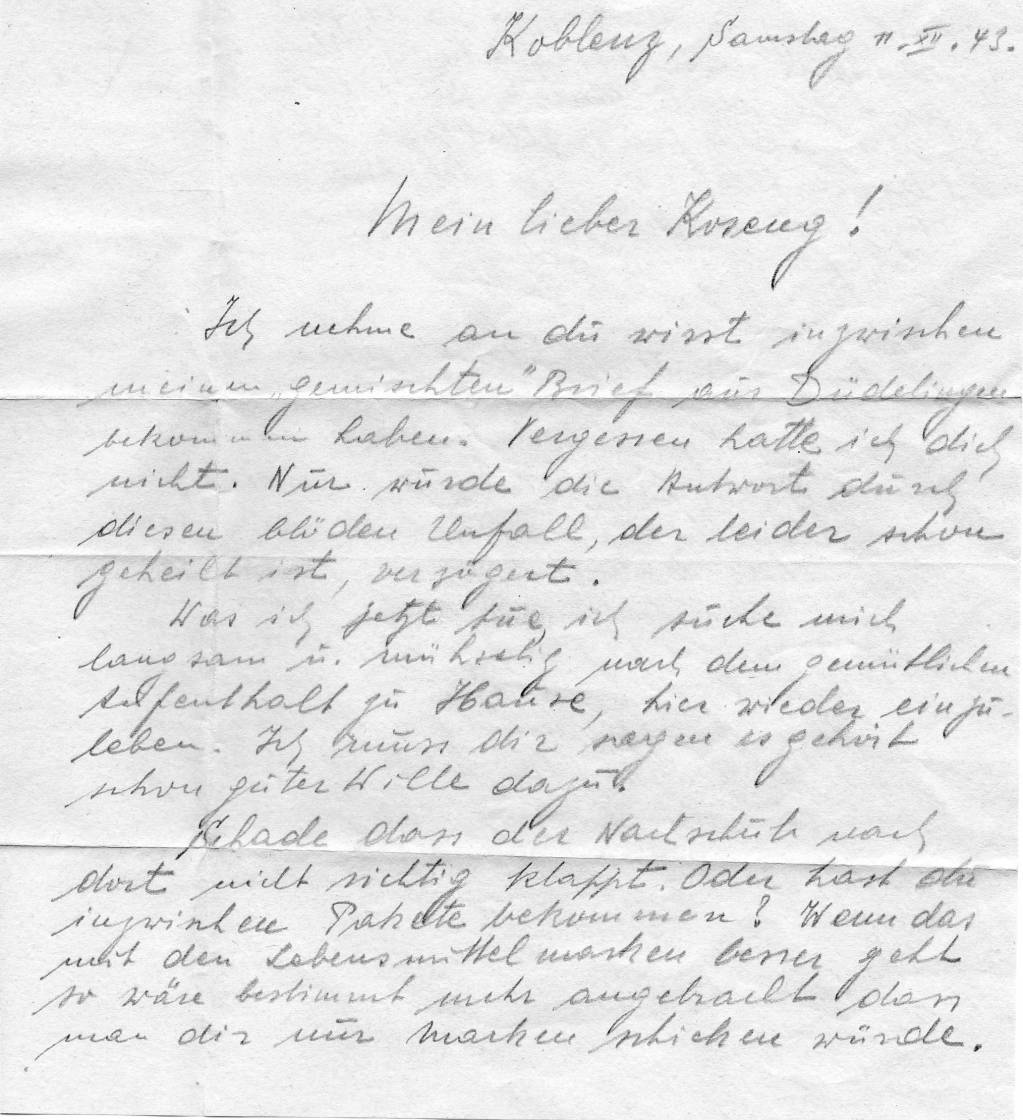 Koblenz, Samstag 11.XII.43.
Mein lieber Koseng!
Ich nehme an du wirst inzwischen
meinen „gemischten" Brief aus Düdelingen
bekommen haben. Vergessen hatte ich dich
nicht. Nur wurde die Antwort durch
diesen blöden Unfall, der leider schon
geheilt ist, verzögert.
Was ich jetzt tue, ich suche mich
langsam u. mühselig nach dem gemütlichen
Aufenthalt zu Hause, hier wieder einzu-
leben. Ich muss dir sagen es gehört
schon guter Wille dazu.
Schade dass der Nachschub nach
dort nicht richtig klappt. Oder hast du
inzwischen Pakete bekommen? Wenn das
mit den Lebensmittelmarken besser geht
so wäre bestimmt mehr angebracht dass
man dir nur Marken schicken würde.